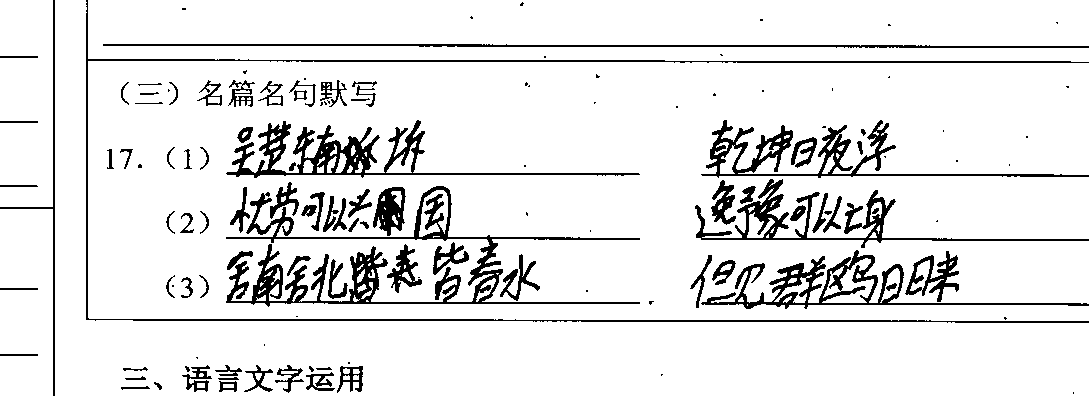 (三)名篇名句默写
17.(1)吴楚东南坼 乾坤日夜浮
(2)忧劳可以兴国 逸豫可以亡身
(3)舍南舍北皆春水 但见群鸥日日来
三、语言文字运用